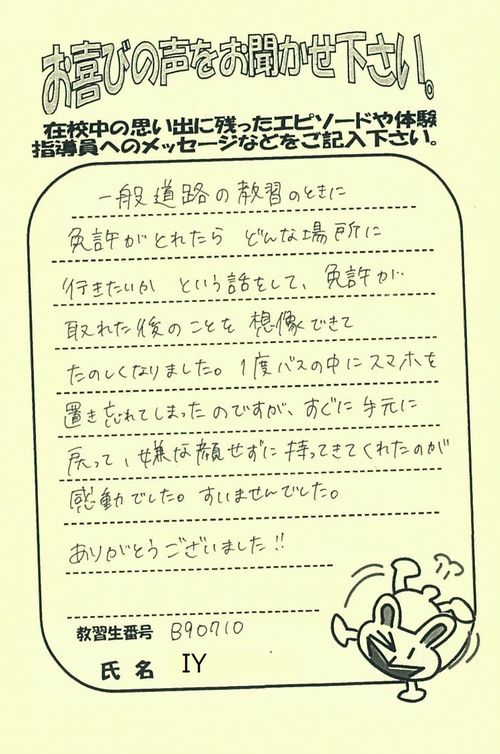 お喜びの声をお聞かせ下さい。
在校中の思い出に残ったエピソードや体験
指導員へのメッセージなどをご記入下さい。
一般道路の教習のときに
免許がとれたら どんな場所に
行きたいか という話をして、免許が
取れた後のことを 想像できて
たのしくなりました。1度バスの中にスマホを
置き忘れてしまったのですが、すぐに手元に
戻って、嫌な顔せずに持ってきてくれたのが
感動でした。すいませんでした。
ありがとうございました!!
教習生番号 B90710
氏名 IY